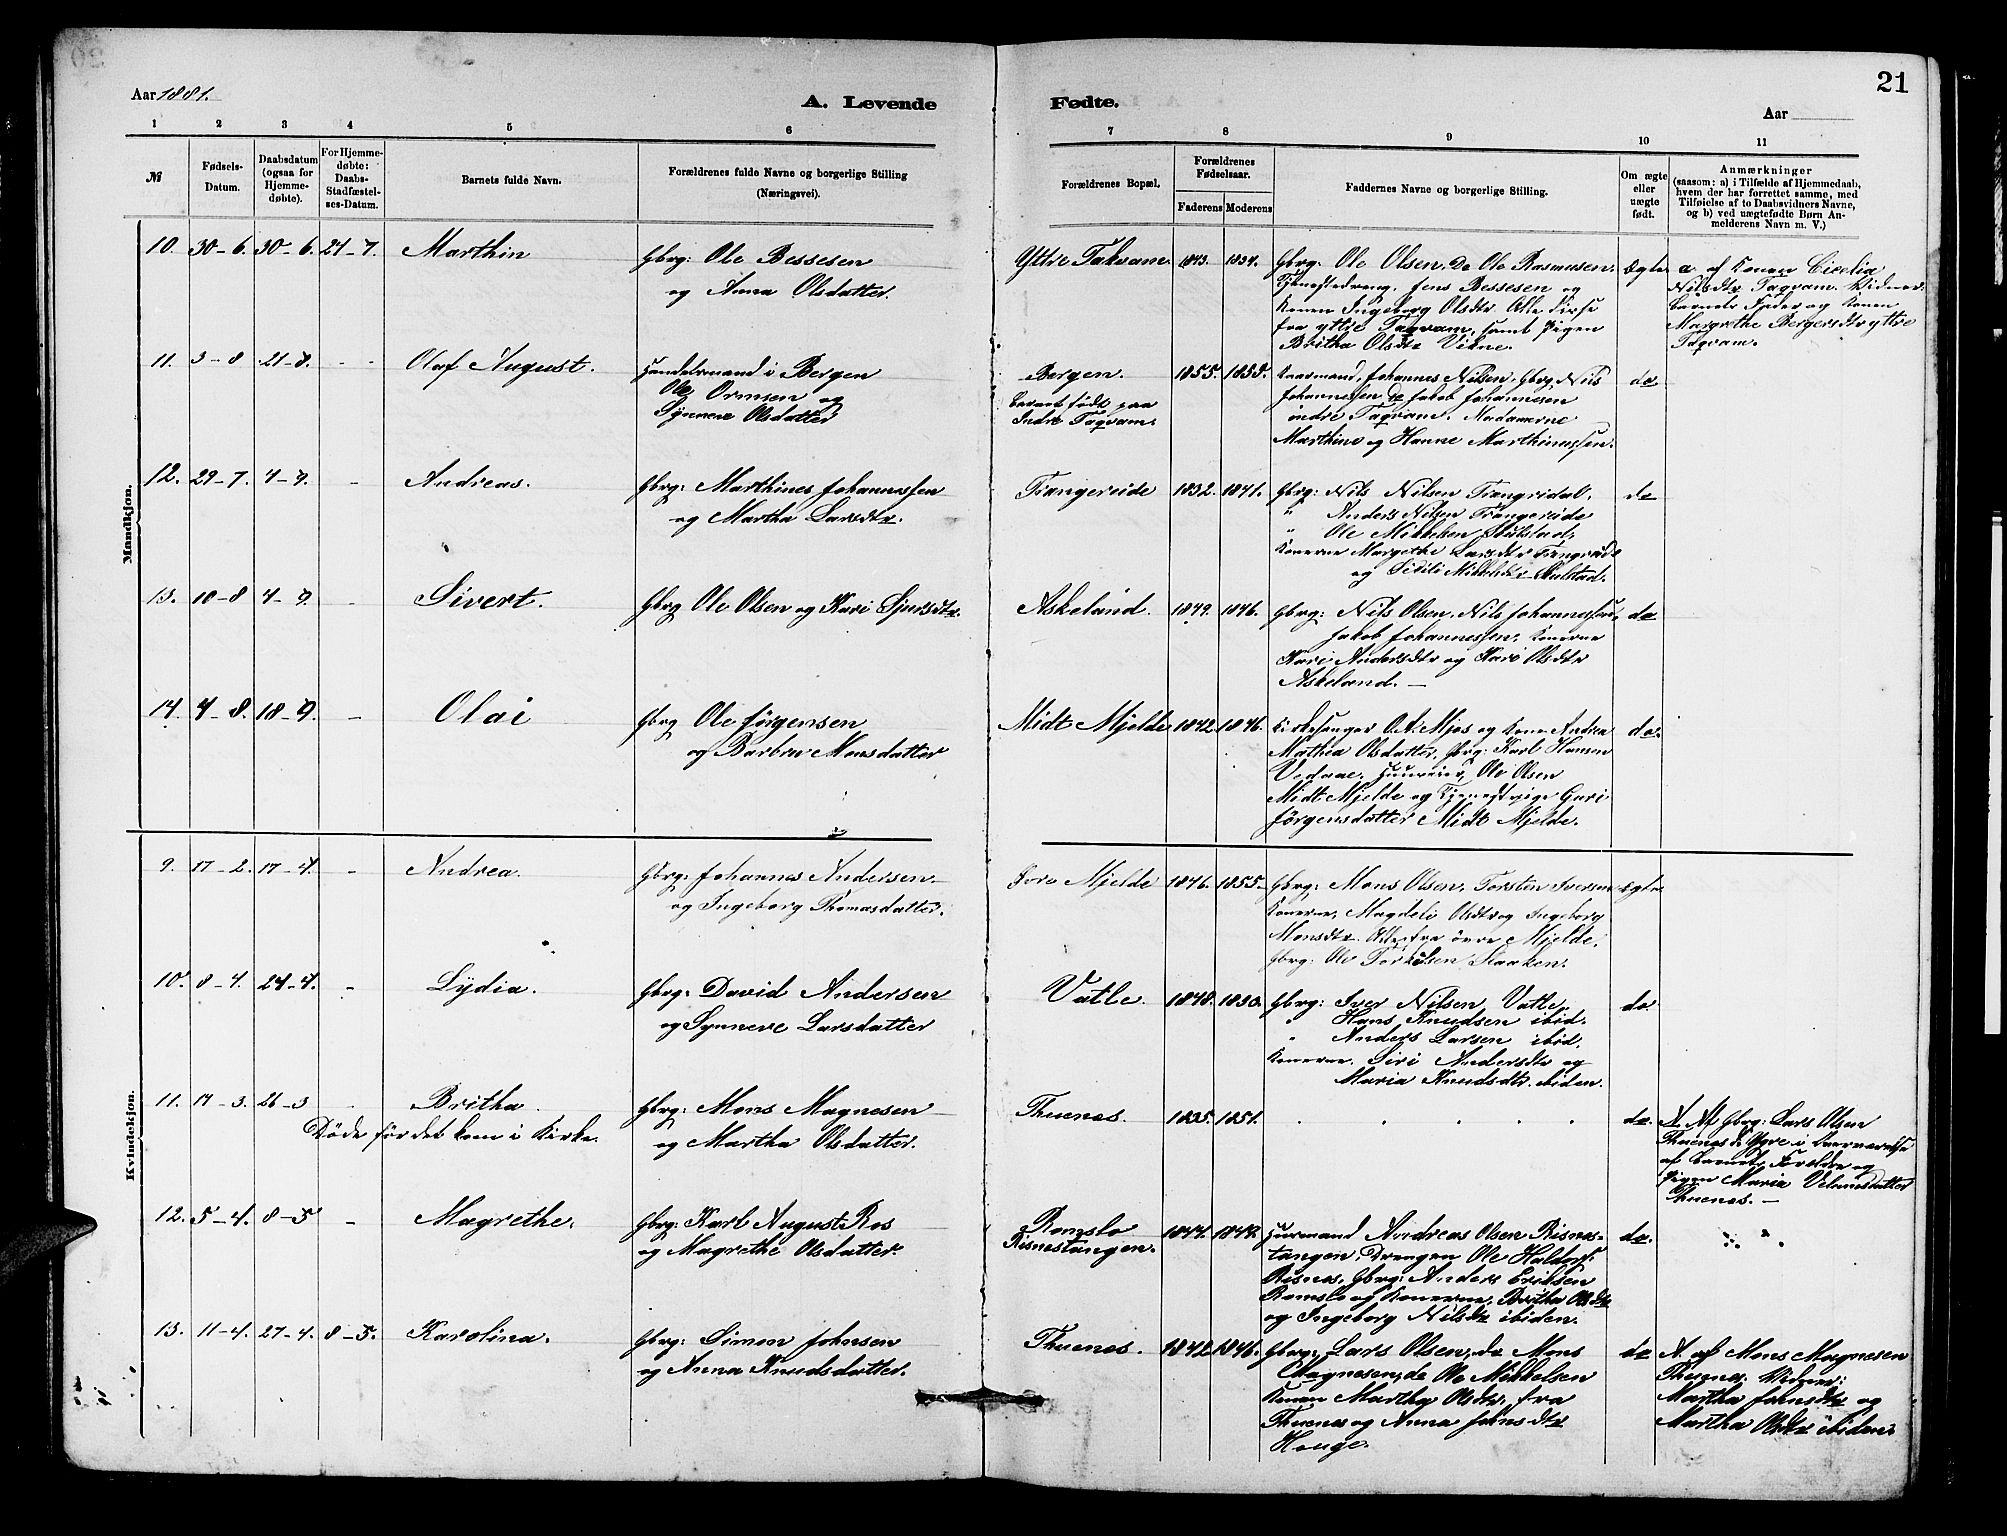 21
Aar 1881.
A. Levende
Fødte.
Aar
1 2 3 4 5 6 7 8 9 10 11
№
Fødsels-
Datum.
Daabsdatum
(ogsaa for
Hjemme-
døbte).
For Hjemme-
døbte:
Daabs-
Stadfæstel-
ses-Datum.
Barnets fulde Navn.
Forældrenes fulde Navne og borgerlige Stilling
(Næringsvei).
Forældrenes Bopæl.
Forældrenes
Fødselsaar.
Faderens Moderens
Faddernes Navne og borgerlige Stilling.
Om ægte
eller
uægte
født.
Anmærkninger
(saasom: a) i Tilfælde af Hjemmedaab,
hvem der har forrettet samme, med
Tilføielse af to Daabsvidners Navne,
og b) ved uægtefødte Børn An-
melderens Navn m. V.)
Mandkjøn.
10. 30-6. 30-6. 24-7. Marthin
Gbrg: Ole Bessesen
og Anna Olsdatter.
Yttre Takvam. 1843. 1834.
Gbrg: Ole Olsen, Do Ole Rasmusen.
Tjenestedreng, Jens Bessesen og
Konen Ingeborg Olsdtr Alle disse
fra yttre Taqvam, samt Pigen
Britha Olsdtr Vikne.
Ægte
a. af Konen Cicelia
Nilsdtr Taqvam. Vidner:
Barnets Fader og Konen
Margrethe Bergersdtr yttre
Taqvam.
11. 3-8 21-8. - - Olaf August.
Handelsmand i Bergen
Ole Ormsen og
Synneve Olsdatter
Bergen.
Barnet født paa
Indre Taqvam.
1855. 1855.
Kaarmand, Johannes Nilsen, Gbrg, Nils
Johannessen do Jakob Johannesen
indre Taqvam. Madamerne
Marthine og Hanne Marthinussen.
do
12. 29-7. 4-9. - Andreas.
Gbrg: Marthines Johannessen
og Martha Larsdtr.
Trangereide 1832. 1841.
Gbrg: Nils Nilsen Trangridal.
" Anders Nilsen Trangereide
" Ole Mikkelsen Skulstad,
Konerne Margethe Larsdtr Trangreide
og Sidsli Mikkelsdtr Skulstad.
do
13. 10-8 4-9. - Sivert.
Gbrg Ole Olsen og Kari Sjursdtr.
Askeland. 1849. 1846.
Gbrg: Nils Olsen, Nils Johannessen,
Jakob Johannessen, Konerne
Kari Andersdtr og Kari Olsdtr
Askeland. -
do
14. 4-8. 18-9. - Olai
Gbrg Ole Jörgensen
og Barbra Monsdatter
Midt Mjelde 1842. 1846.
Kirkesanger O. A. Mjøs og Kone Andrea
Mathea Olsdatter, Gbrg: Karl Hansen
Vedaae. Huuseier, Ole Olsen
Midt Mjelde og Tjenestepige Guri
Jörgensdatter Midt Mjelde.
do.
Kvindekjøn.
9. 17-2. 17-4. - Andrea.
Gbrg: Johannes Andersen
og Ingeborg Thomasdatter.
Övre Mjelde 1846. 1855.
Gbrg: Mons Olsen, Torsten Iversen
Konerne, Magdeli Olsdtr og Ingeborg
Monsdtr. Alle fra övre Mjelde.
Gbrg: Ole Torkilsen Slaaken.
Ægte
10. 8-4. 24-4. - Lydia.
Gbrg: David Andersen
og Synneve Larsdatter
Vatle 1848. 1850.
Gbrg: Iver Nilsen Vatle,
" Hans Knudsen ibid.
" Anders Larsen ibid.
Konerne, Siri Andersdtr og
Maria Knudsdtr. ibiden.
do
11. 17-3. 26-3 Britha.
Döde för det kom i Kirke.
Gbrg: Mons Magnesen
og Martha Olsdatter.
Thuenes. 1835. 1851.
do.
A. Af Gbrg: Lars Olsen
Thuenes i Nærværelse
af Barnets Foreldre og
Pigen Maria
Thuenes. -
12. 5-4. 8-5 - Magrethe.
Gbrg: Karl August Ros
og Magrethe Olsdatter.
Romslo
Risnestangen.
1844. 1849.
Huusmand Andreas Olsen Risnes-
tangen, Drengen Ole Haldorf:
Risnes, Gbrg: Anders Eriksen
Romslo og Konerne, Britha Olsdtr
og Ingeborg Nilsdtr ibiden.
do.
13. 11-4. 27-4. 8-5. Karolina.
Gbrg: Simon Johnsen
og Anna Knudsdatter.
Thuenes. 1842. 1846.
Gbrg, Lars Olsen, do Mons
Magnesen, do Ole Mikkelsen
Konen Martha Olsdtr, fra
Thuenes og Anna Johnsdtr
Houge.
do
A. af Mons Magnesen
Thuenes. Vidner:
Martha Johnsdtr og
Martha Olsdtr ibiden.